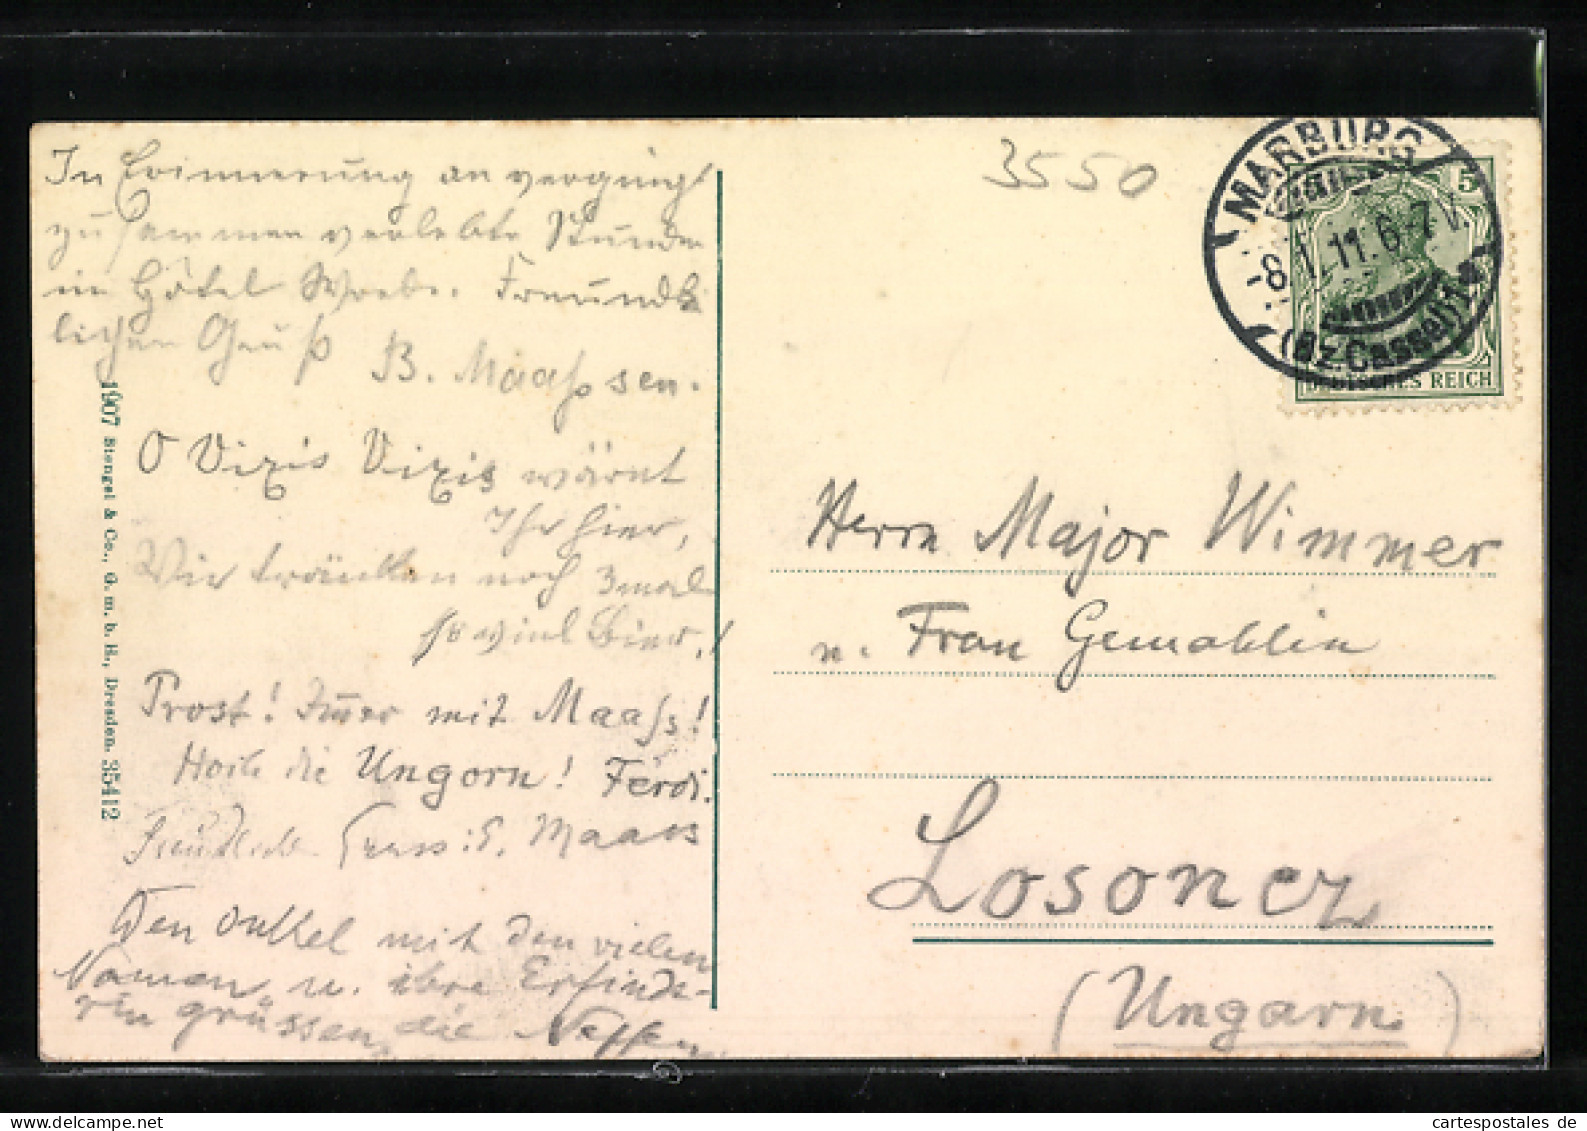 In Erinnerung an vergnügt
zusammen verlebte Stunden
im Hôtel Freund
lichen Gruß B. Maassen.
O Vixis Vixis wärnt
Ihr hier,
Wir tränken noch 3mal
so viel Bier!
Prost! Immer mit Maass!
Hoch die Ungarn! Ferdi.
Gruss: E. Maass
Den Onkel mit den vielen
Namen u. ihre Erfinde-
rin grüssen die Neffen
1907 Stengel & Co., G. m. b. H., Dresden. 35412
3550
MARBURG
-8.1.11.6-7V.
(Bz.Cassel)1a
5
DEUTSCHES REICH
Herrn Major Wimmer
u. Frau Gemahlin
Losoncz
(Ungarn)
cartespostales de